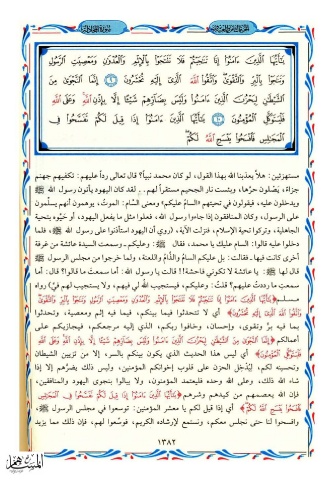 يَٰٓأَيُّهَا ٱلَّذِينَ ءَامَنُوٓاْ إِذَا تَنَٰجَيۡتُمۡ فَلَا تَتَنَٰجَوۡاْ بِٱلۡإِثۡمِ وَٱلۡعُدۡوَٰنِ وَمَعۡصِيَتِ ٱلرَّسُولِ
وَتَنَٰجَوۡاْ بِٱلۡبِرِّ وَٱلتَّقۡوَىٰۖ وَٱتَّقُواْ ٱللَّهَ ٱلَّذِيٓ إِلَيۡهِ تُحۡشَرُونَ ٩ إِنَّمَا ٱلنَّجۡوَىٰ مِنَ
ٱلشَّيۡطَٰنِ لِيَحۡزُنَ ٱلَّذِينَ ءَامَنُواْ وَلَيۡسَ بِضَآرِّهِمۡ شَيۡـًٔا إِلَّا بِإِذۡنِ ٱللَّهِۚ وَعَلَى ٱللَّهِ
فَلۡيَتَوَكَّلِ ٱلۡمُؤۡمِنُونَ ١٠ يَٰٓأَيُّهَا ٱلَّذِينَ ءَامَنُوٓاْ إِذَا قِيلَ لَكُمۡ تَفَسَّحُواْ فِي
ٱلۡمَجَٰلِسِ فَٱفۡسَحُواْ يَفۡسَحِ ٱللَّهُ لَكُمۡۖ
مستهزئين: هلاّ يعذبنا الله بهذا القول، لو كان محمد نبياً؟ قال تعالى رداً عليهم: تكفيهم جهنم
جزاءً، يَصْلَون حرّها، وبئست نار الجحيم مستقراً لهم.. لقد كان اليهود يأتون رسول الله ﷺ
ويدخلون عليه، فيقولون في تحيتهم «السام عليكم» ومعنى السَّام: الموتُ، يوهمون أنهم يسلِّمون
على الرسول، وكان المنافقون إذا جاءوا رسول الله، فعلوا مثل ما يفعل اليهود، أو حَيَّوه بتحية
الجاهلية، وتركوا تحية الإسلام، فنزلت الآية، (روي أن اليهود استأذنوا على رسول الله ﷺ، فلما
دخلوا عليه قالوا: السام عليك يا محمد، فقال ﷺ: وعليكم.. وسمعت السيدة عائشة من غرفة
أخرى كانت فيها، فقالت: بل عليكم السام والذَّام واللعنة، ولما خرجوا من مجلس الرسول ﷺ
قال لها ﷺ: يا عائشة لا تكوني فاحشة!! قالت يا رسول الله: أما سمعتَ ما قالوا؟ قال: أما
سمعتِ ما رددتُ عليهم؟ قلتُ: وعليكم، فيستجيب الله لي فيهم، ولا يستجيب لهم فيَّ) رواه
مسلم ﴿يَٰٓأَيُّهَا ٱلَّذِينَ ءَامَنُوٓاْ إِذَا تَنَٰجَيۡتُمۡ فَلَا تَتَنَٰجَوۡاْ بِٱلۡإِثۡمِ وَٱلۡعُدۡوَٰنِ وَمَعۡصِيَتِ ٱلرَّسُولِ وَتَنَٰجَوۡاْ بِٱلۡبِرِّ وَٱلتَّقۡوَىٰۖ
وَٱتَّقُواْ ٱللَّهَ ٱلَّذِيٓ إِلَيۡهِ تُحۡشَرُونَ﴾ أي لا تتحدثوا فيما بينهم، فيما فيه إثم ومعصية، وتحدثوا
بما فيه برٌّ وتقوى، وإحسان، وخافوا ربكم، الذي إليه مرجعكم، فيجازيكم على
أعمالكم ﴿إِنَّمَا ٱلنَّجۡوَىٰ مِنَ ٱلشَّيۡطَٰنِ لِيَحۡزُنَ ٱلَّذِينَ ءَامَنُواْ وَلَيۡسَ بِضَآرِّهِمۡ شَيۡـًٔا إِلَّا بِإِذۡنِ ٱللَّهِۚ وَعَلَى ٱللَّهِ
فَلۡيَتَوَكَّلِ ٱلۡمُؤۡمِنُونَ﴾ أي ليس هذا الحديث الذي يكون بينكم بالسر، إلا من تزيين الشيطان
وتحسينه لكم، ليُدْخِل الحزن على قلوب إخوانكم المؤمنين، وليس ذلك يضرُّهم إلا إذا
شاء الله ذلك، وعلى الله وحده فليعتمد المؤمنون، ولا يبالوا بنجوى اليهود والمنافقين،
فإن الله يعصمهم من كيدهم وشرهم ﴿يَٰٓأَيُّهَا ٱلَّذِينَ ءَامَنُوٓاْ إِذَا قِيلَ لَكُمۡ تَفَسَّحُواْ فِي ٱلۡمَجَٰلِسِ
فَٱفۡسَحُواْ يَفۡسَحِ ٱللَّهُ لَكُمۡ﴾ أي إذا قيل لكم يا معشر المؤمنين: توسعوا في مجلس الرسول ﷺ،
وافسحوا لنا حتى نجلس معكم، ونستمع لإرشاده الكريم، فوسِّعوا لهم، فإن ذلك مما يزيد
١٣٨٢